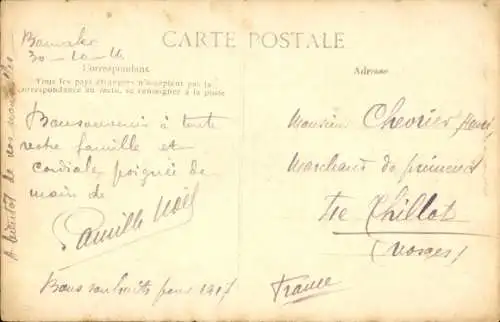 30-10-16
CARTE POSTALE
Correspondance
Tous les pays étrangers n'acceptent pas la
correspondance au recto, se renseigner à la poste
Adresse
Bonsouvenir à toute
votre famille et
cordiale poignée de
main de
Camille Noël
Bons souhaits pour 1917
A bientôt de vos
Monsieur Chevrier Henri
Marchand de primeurs
Le Thillot
(Vosges)
France